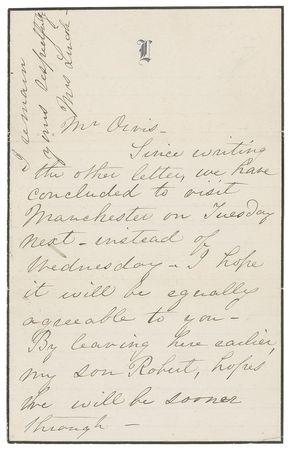 L
Mr Orvis-
Since writing
the other letter, we have
concluded to visit
Manchester on Tuesday
next- instead of
Wednesday- I hope
it will be equally
agreeable to you-
By leaving here earlier,
my son Robert, hopes
we will be sooner
through-
I remain
yours respectfully
Mrs Lincoln-